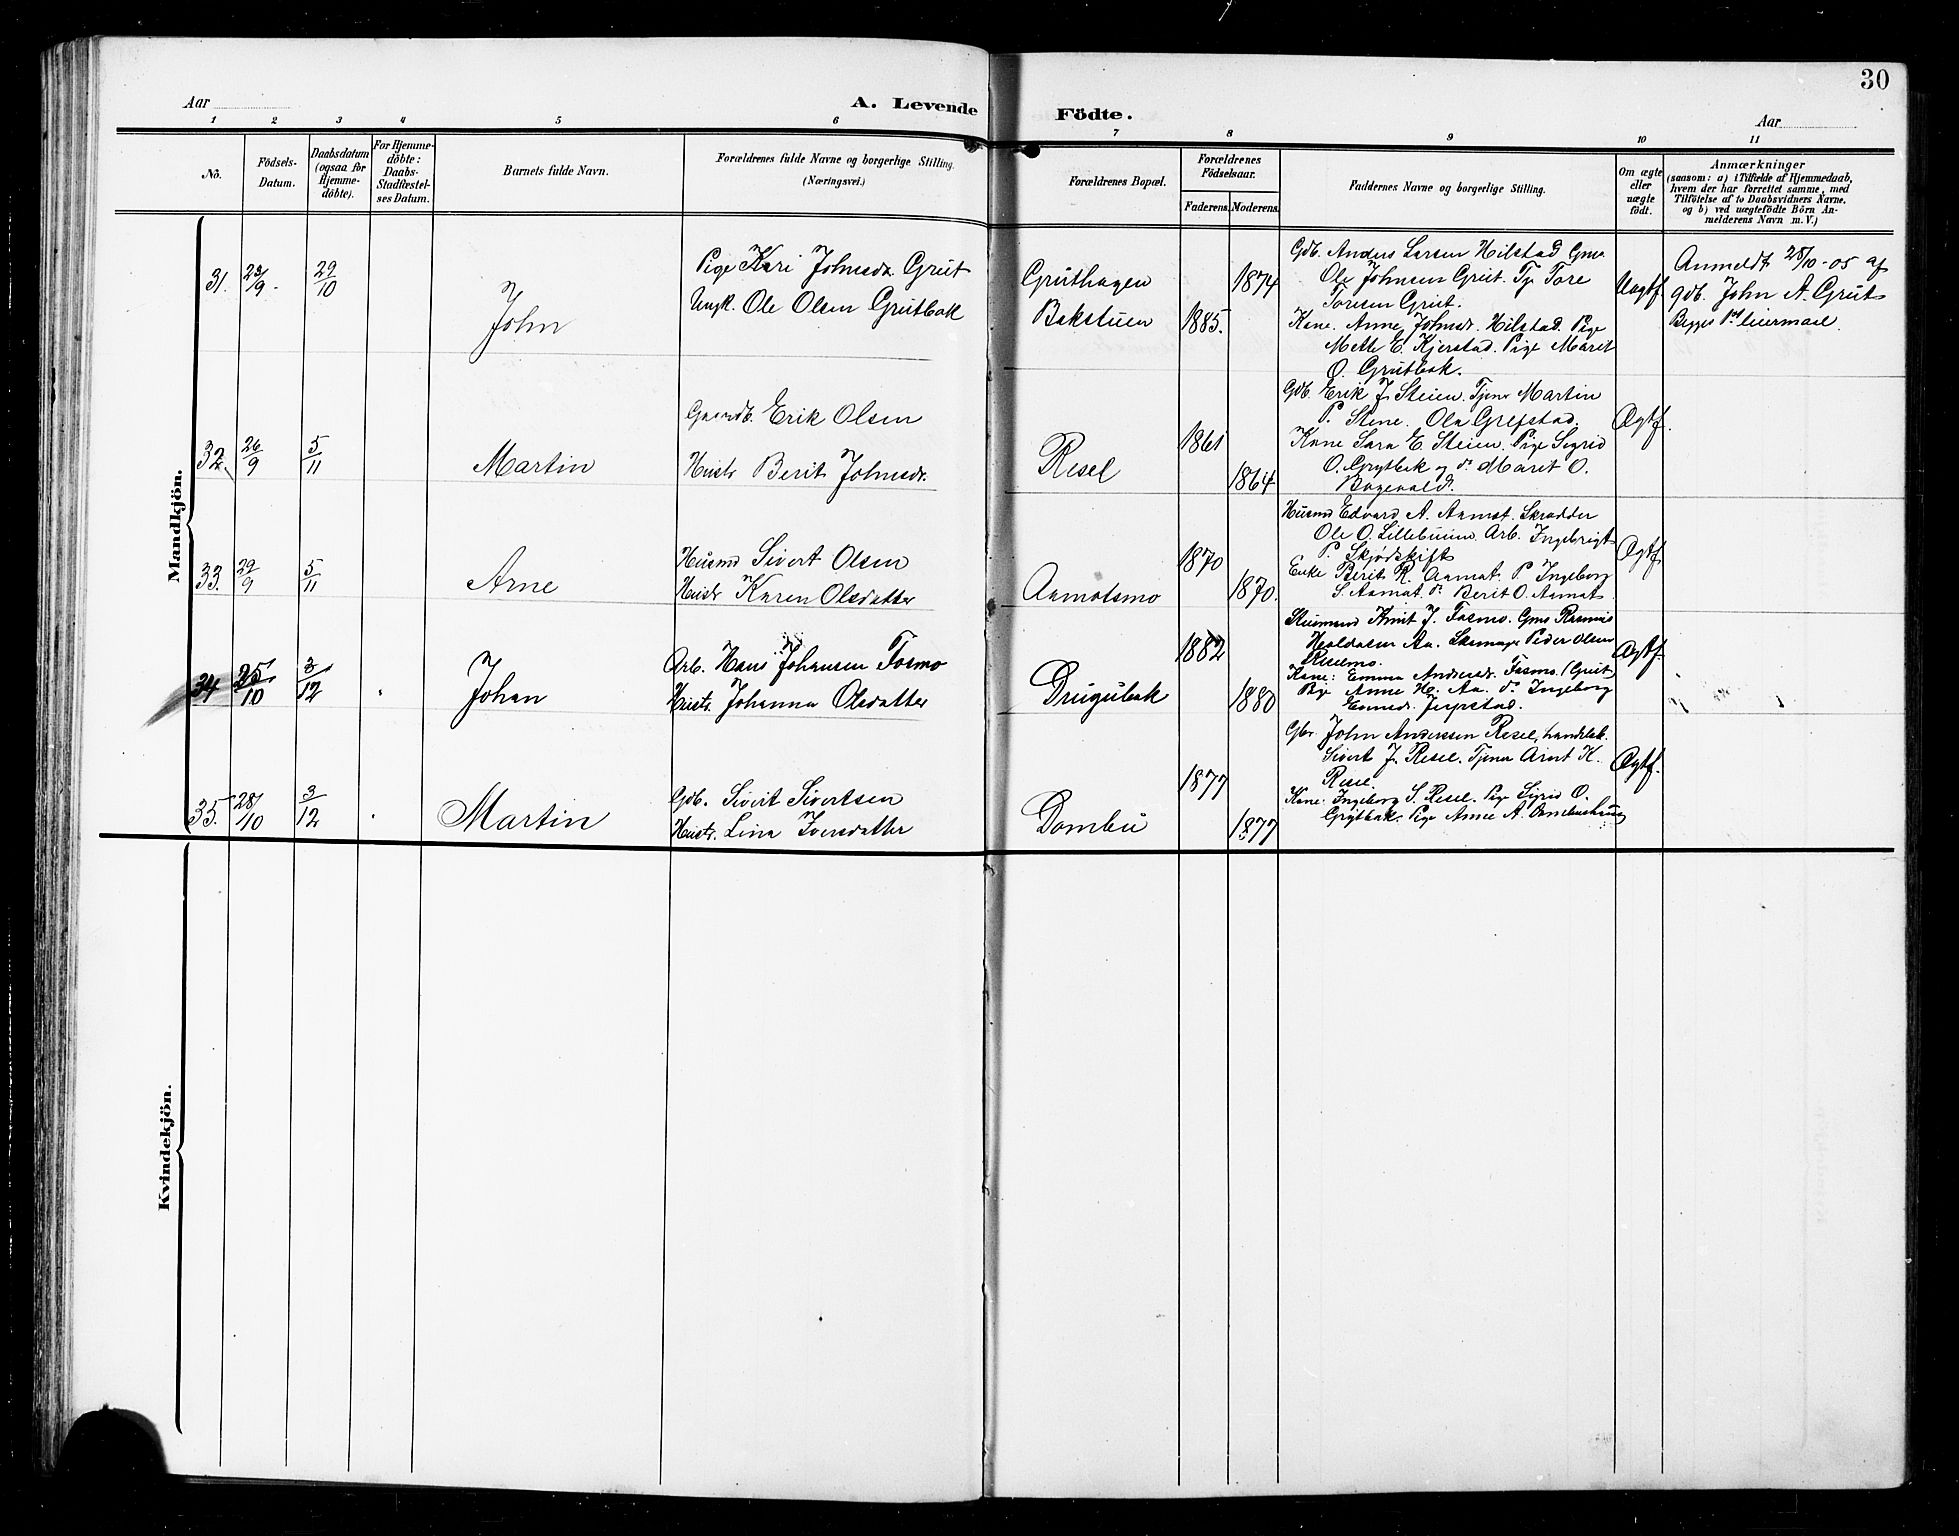 30
Aar
A. Levende
Födte.
Aar
1 2 3 4 5 6 7 8 9 10 11
No.
Födsels-
Datum.
Daabsdatum
(ogsaa for
Hjemme-
döbte).
For Hjemme-
döbte:
Daabs-
Stadfæstel-
ses Datum.
Barnets fulde Navn.
Forældrenes fulde Navne og borgerlige Stilling.
(Næringsvei.)
Forældrenes Bopæl.
Forældrenes
Födselsaar.
Faderens. Moderens.
Faddernes Navne og borgerlige Stilling.
Om ægte
eller
uægte
födt.
Anmærkninger
(saasom: a) i Tilfælde af Hjemmedaab,
hvem der har forrettet samme, med
Tilföielse af to Daabsvidners Navne,
og b) ved uægtefödte Börn An-
melderens Navn m. V.)
Mandkjön.
31. 23/9 29/10
John
Pige Kari Johnsdr. Grut
Ungk. Ole Olsen Grutbak
Gruthagen
Bakstuen
1874
1885.
Gdb. Anders Larsen Hilstad Gms
Ole Johnsen Grut. Tj. Tore
Toresen Grut.
Kone. Anne Johnsdr. Hilstad. Pige
Mette E. Kjerstad. Pige Marit
O. Grutbak.
Uægtf.
Anmeldt 28/10-05 af
gdb. John A. Grut
Begges 1ste leiermaal.
32. 26/9 5/11
Martin
Gaardb. Erik Olsen
Hustr Berit Johnsdr.
Resel
1861
1864
Gdb. Erik J. Steien. Tjener Martin
P. Stene. Ola Grefstad.
Kone Sara E. Steien. Pige Sigrid
O. Grytbak og do Marit O.
Bagevold.
Ægtf.
33. 29/9 5/11
Arne
Husmd Sivert Olsen
Hustr Karen Olsdatter
Aamotsmo
1870
1870.
Husmd Edvard A. Aamot. Skrædder
Ole O. Lillebuen. Arb. Ingebrigt
P. Skjødskift
Enke Berit R. Aamot. P. Ingeborg
S. Aamot. do Berit O. Aamot.
Ægtf.
34 25/10 3/12 "
Johan
Arb. Hans Johansen Fosmo
Hustr. Johanna Olsdatter
Drugubak
1882
1880
J. Fosmo. Gms Rasmus
Aa. Peder Olsen
Reselmo.
Kone: Emma Andersdr. Fosmo. (Grut)
Pige Anne H. Aa. do Ingeborg
Jerpstad.
Ægtf.
35. 28/10 3/12 "
Martin
Gdb. Sivert Sivertsen
Hustr. Lina Iversdatter
Dombu
1877
1877
Gbr. John Anderssen Resel, handelsb.
Sivert J. Resel. Tjener Arnt K.
Resel.
Kone: Ingeborg S. Resel. Pige Sigrid O.
Grytbak. Pige Anne A.
Ægtf.
Kvindekjön.